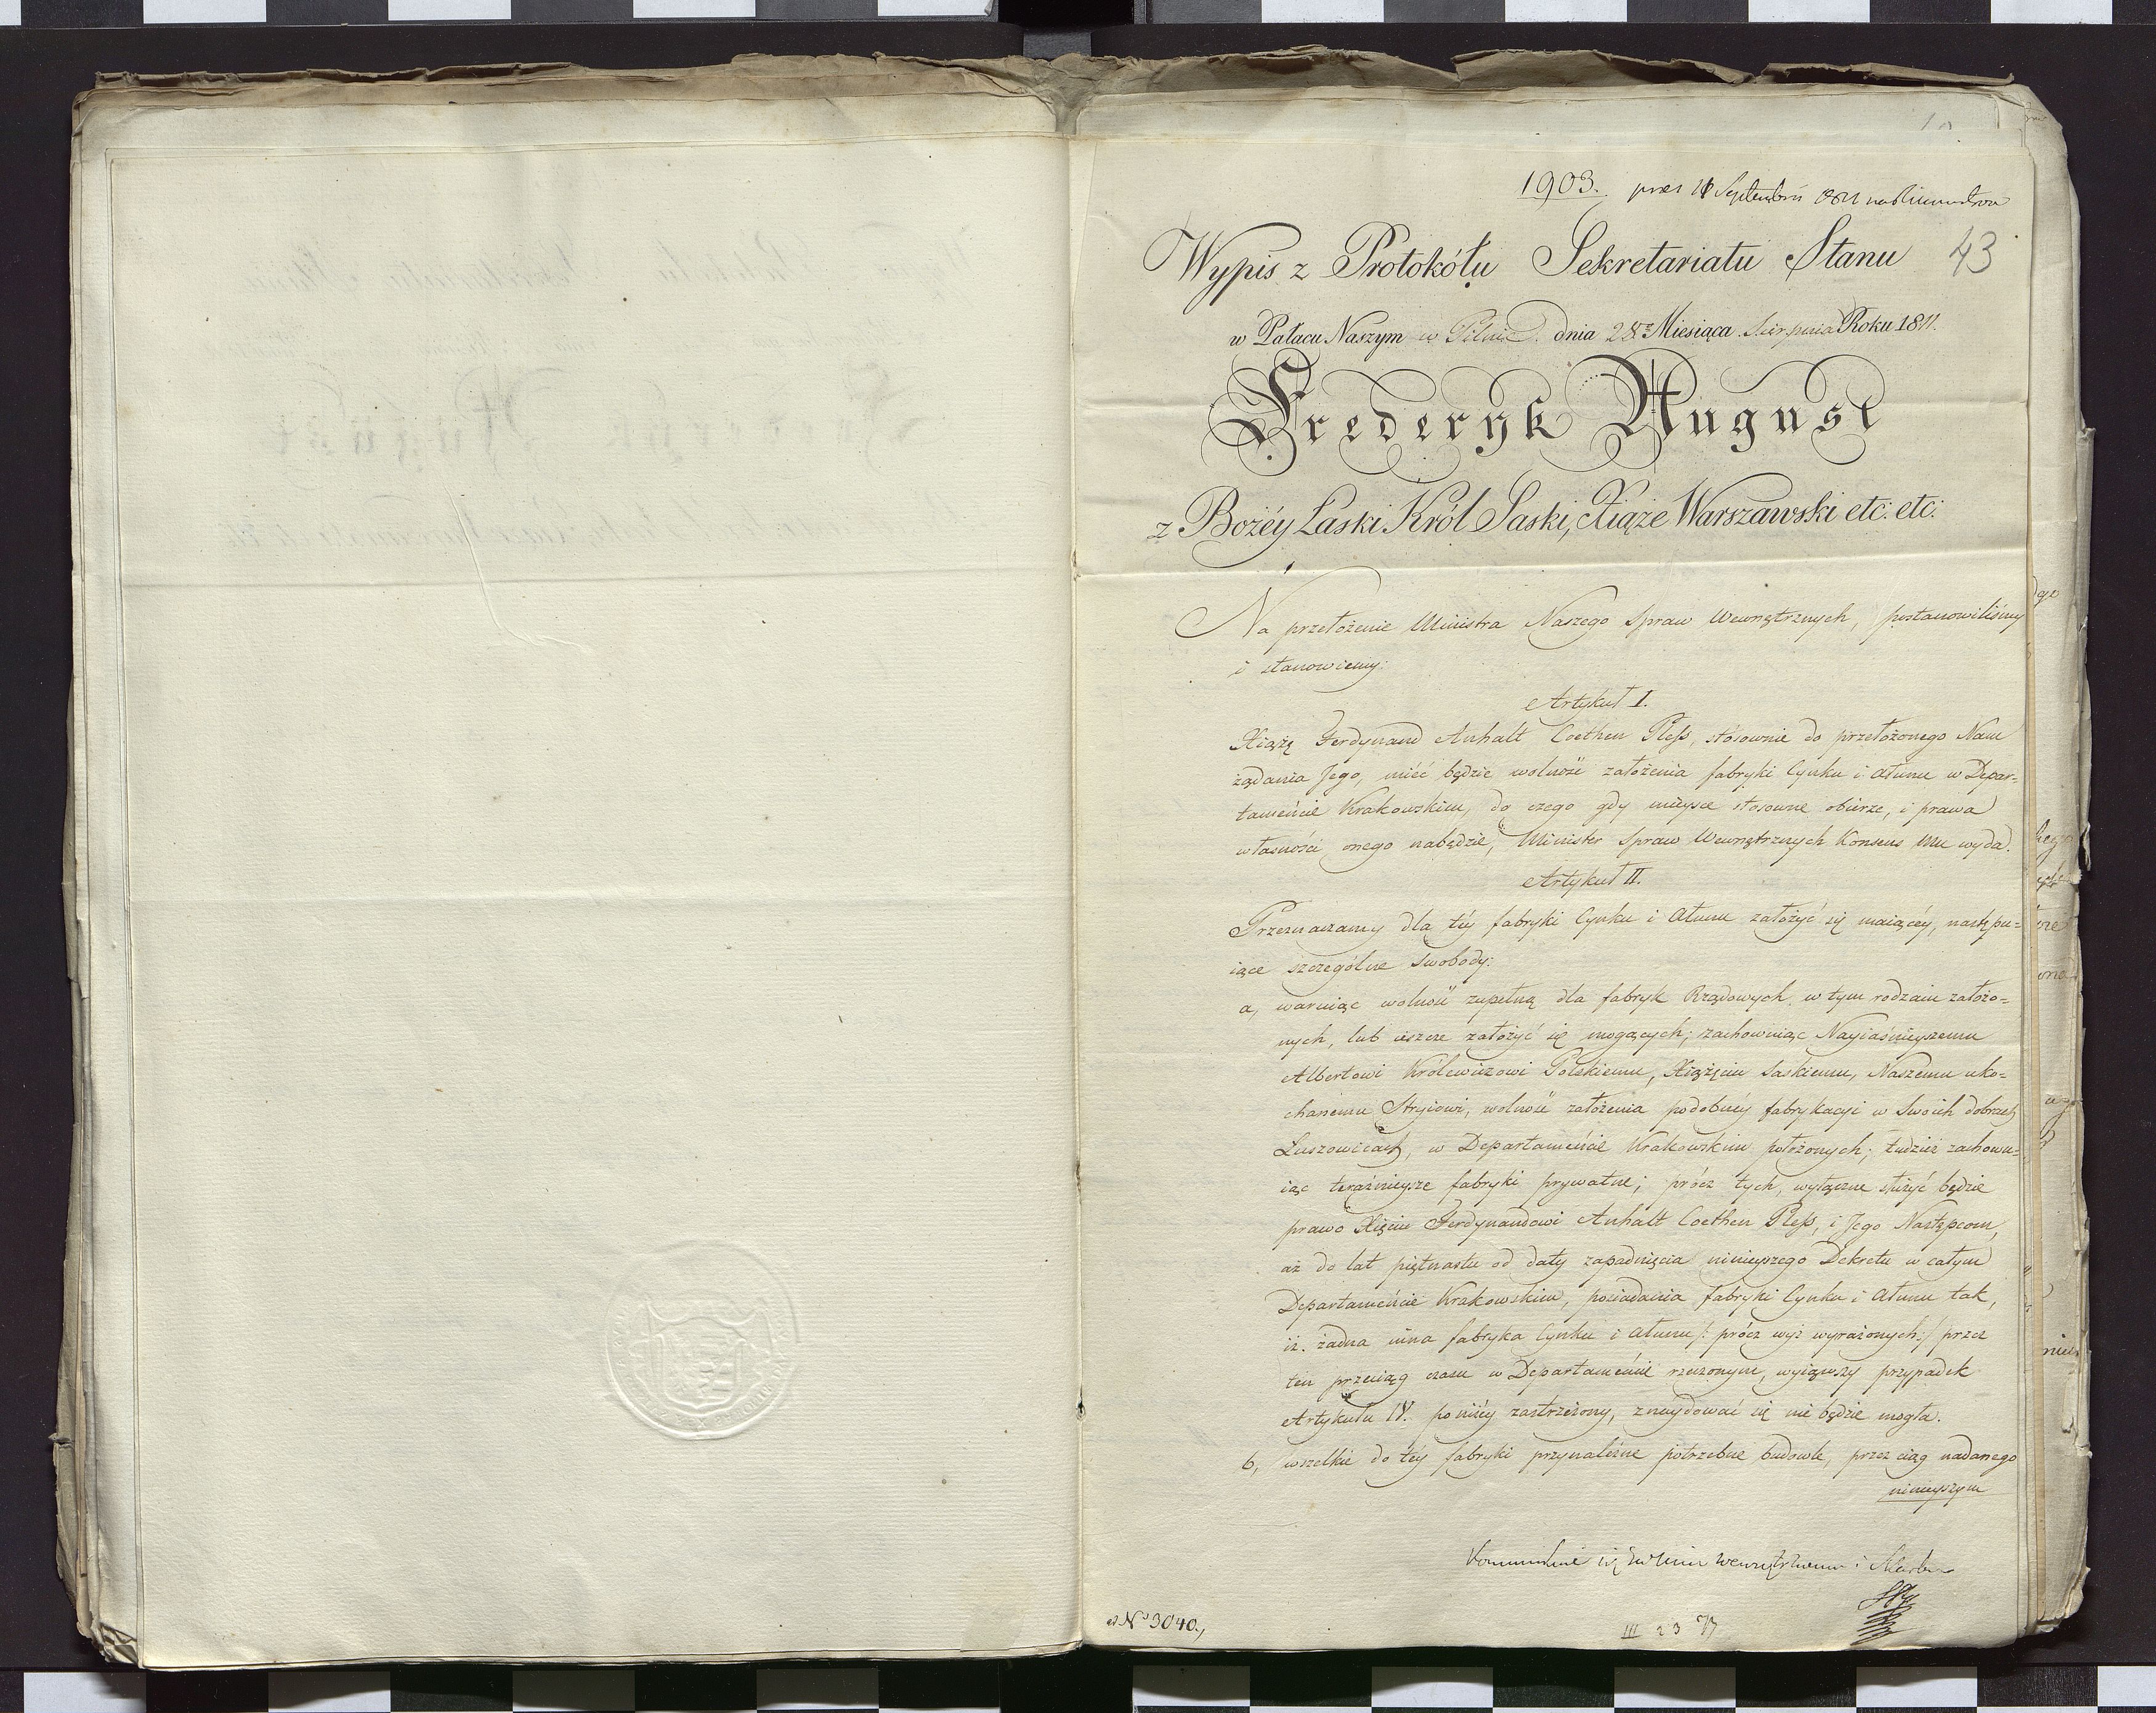 1903. pres 11 Septembris 1811
Wypis z Protokółu Sekretariatu Stanu 43
w Pałacu Naszym w Pilnic. dnia 28º Miesiąca Sierpnia Roku 1811.
Frederyk August
z Bożéy Łaski Król Saski, Xiąże Warszawski etc: etc:
Na przełożenie Ministra Naszego Spraw Wewnętrznych, postanowiliśmy
i stanowiemy:
Artykuł I.
Xiążę Ferdynand Anhalt Coethen Pleſs, stósownie do przełożonego Nam
żądania Jego, mieć będzie wolność założenia fabryki Cynku i Ałunu w Depar=
tamencie Krakowskim, do czego gdy mieysce stosowne obierze, i prawa
własności onego nabędzie, Minister Spraw Wewnętrznych Konsens Mu wyda.
Artykuł II.
Przeznaczamy dla téy fabryki Cynku i Ałunu założyć się maiącéy, nastepu=
iące szczególne swobody:
a, waruiąc wolność zupełną dla fabryk Rządowych w tym rodzaiu założo=
nych, lub ieszcze założyć się mogących; zachowuiąc Nayiaśnieyszemu
Albertowi Królewiczowi Polskiemu, Xiążęciu Saskiemu, Naszemu uko=
chanému Stryiowi, wolność założenia podobnéy fabrykacyi w Swoich dobrach
Łuszowicach, w Departamencie Krakowskim położonych; tudzież zachowu=
iąc teraźnieysze fabryki prywatne; prócz tych, wyłączne służyć będzie
prawo Xięciu Ferdynandowi Anhalt Coethen Pleſs, i Jego Następcom,
aż do lat piętnastu od daty zapadnięcia ninieyszego Dekretu w całym
Departamencie Krakowskim, posiadania fabryki Cynku i Ałunu tak,
iż żadna inna fabryka Cynku i Ałunu /: prócz wyż wyrażonych :/ przez
ten przeciąg czasu w Departamencie rzeczonym, wyiąwszy przypadek
Artykułu IV. poniżéy zastrzeżony, znaydować się nie będzie mogła.
b, wszelkie do téy fabryki przynależne potrzebne budowle, przez ciąg nadanego
ninieyszym
Wewnętrznemu i Skarbu
ad Nº 3040.,
III 23